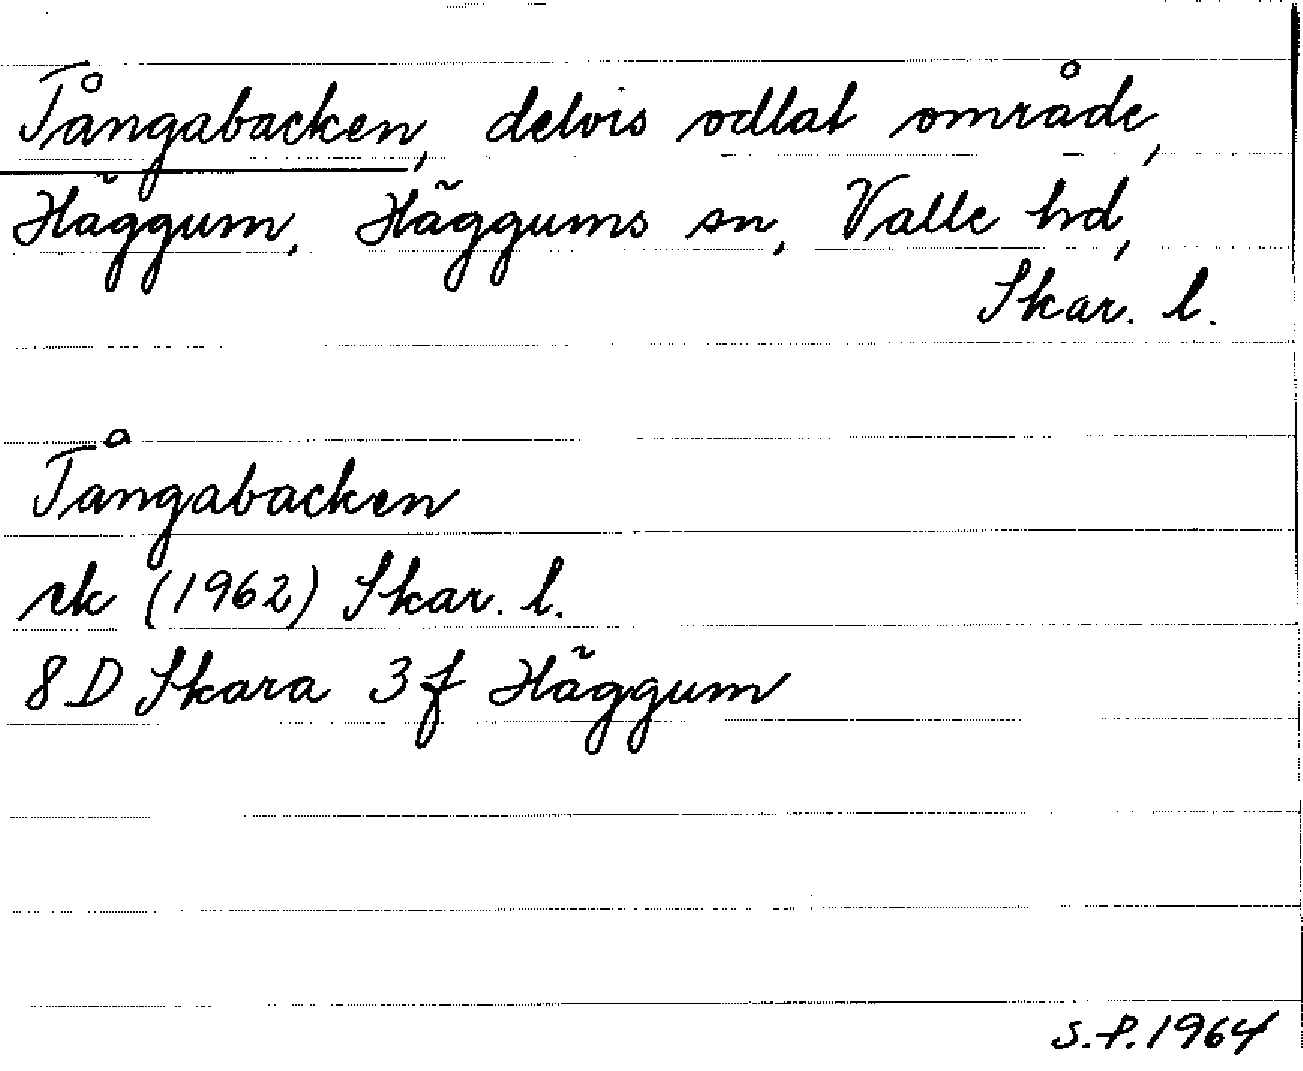 Tångabacken, delvis odlat område,
Häggum, Häggums sn, Valle hd,
Skar. l.
Tångabacken
ek (1962) Skar. l.
8D Skara 3f Häggum
S.P. 1964